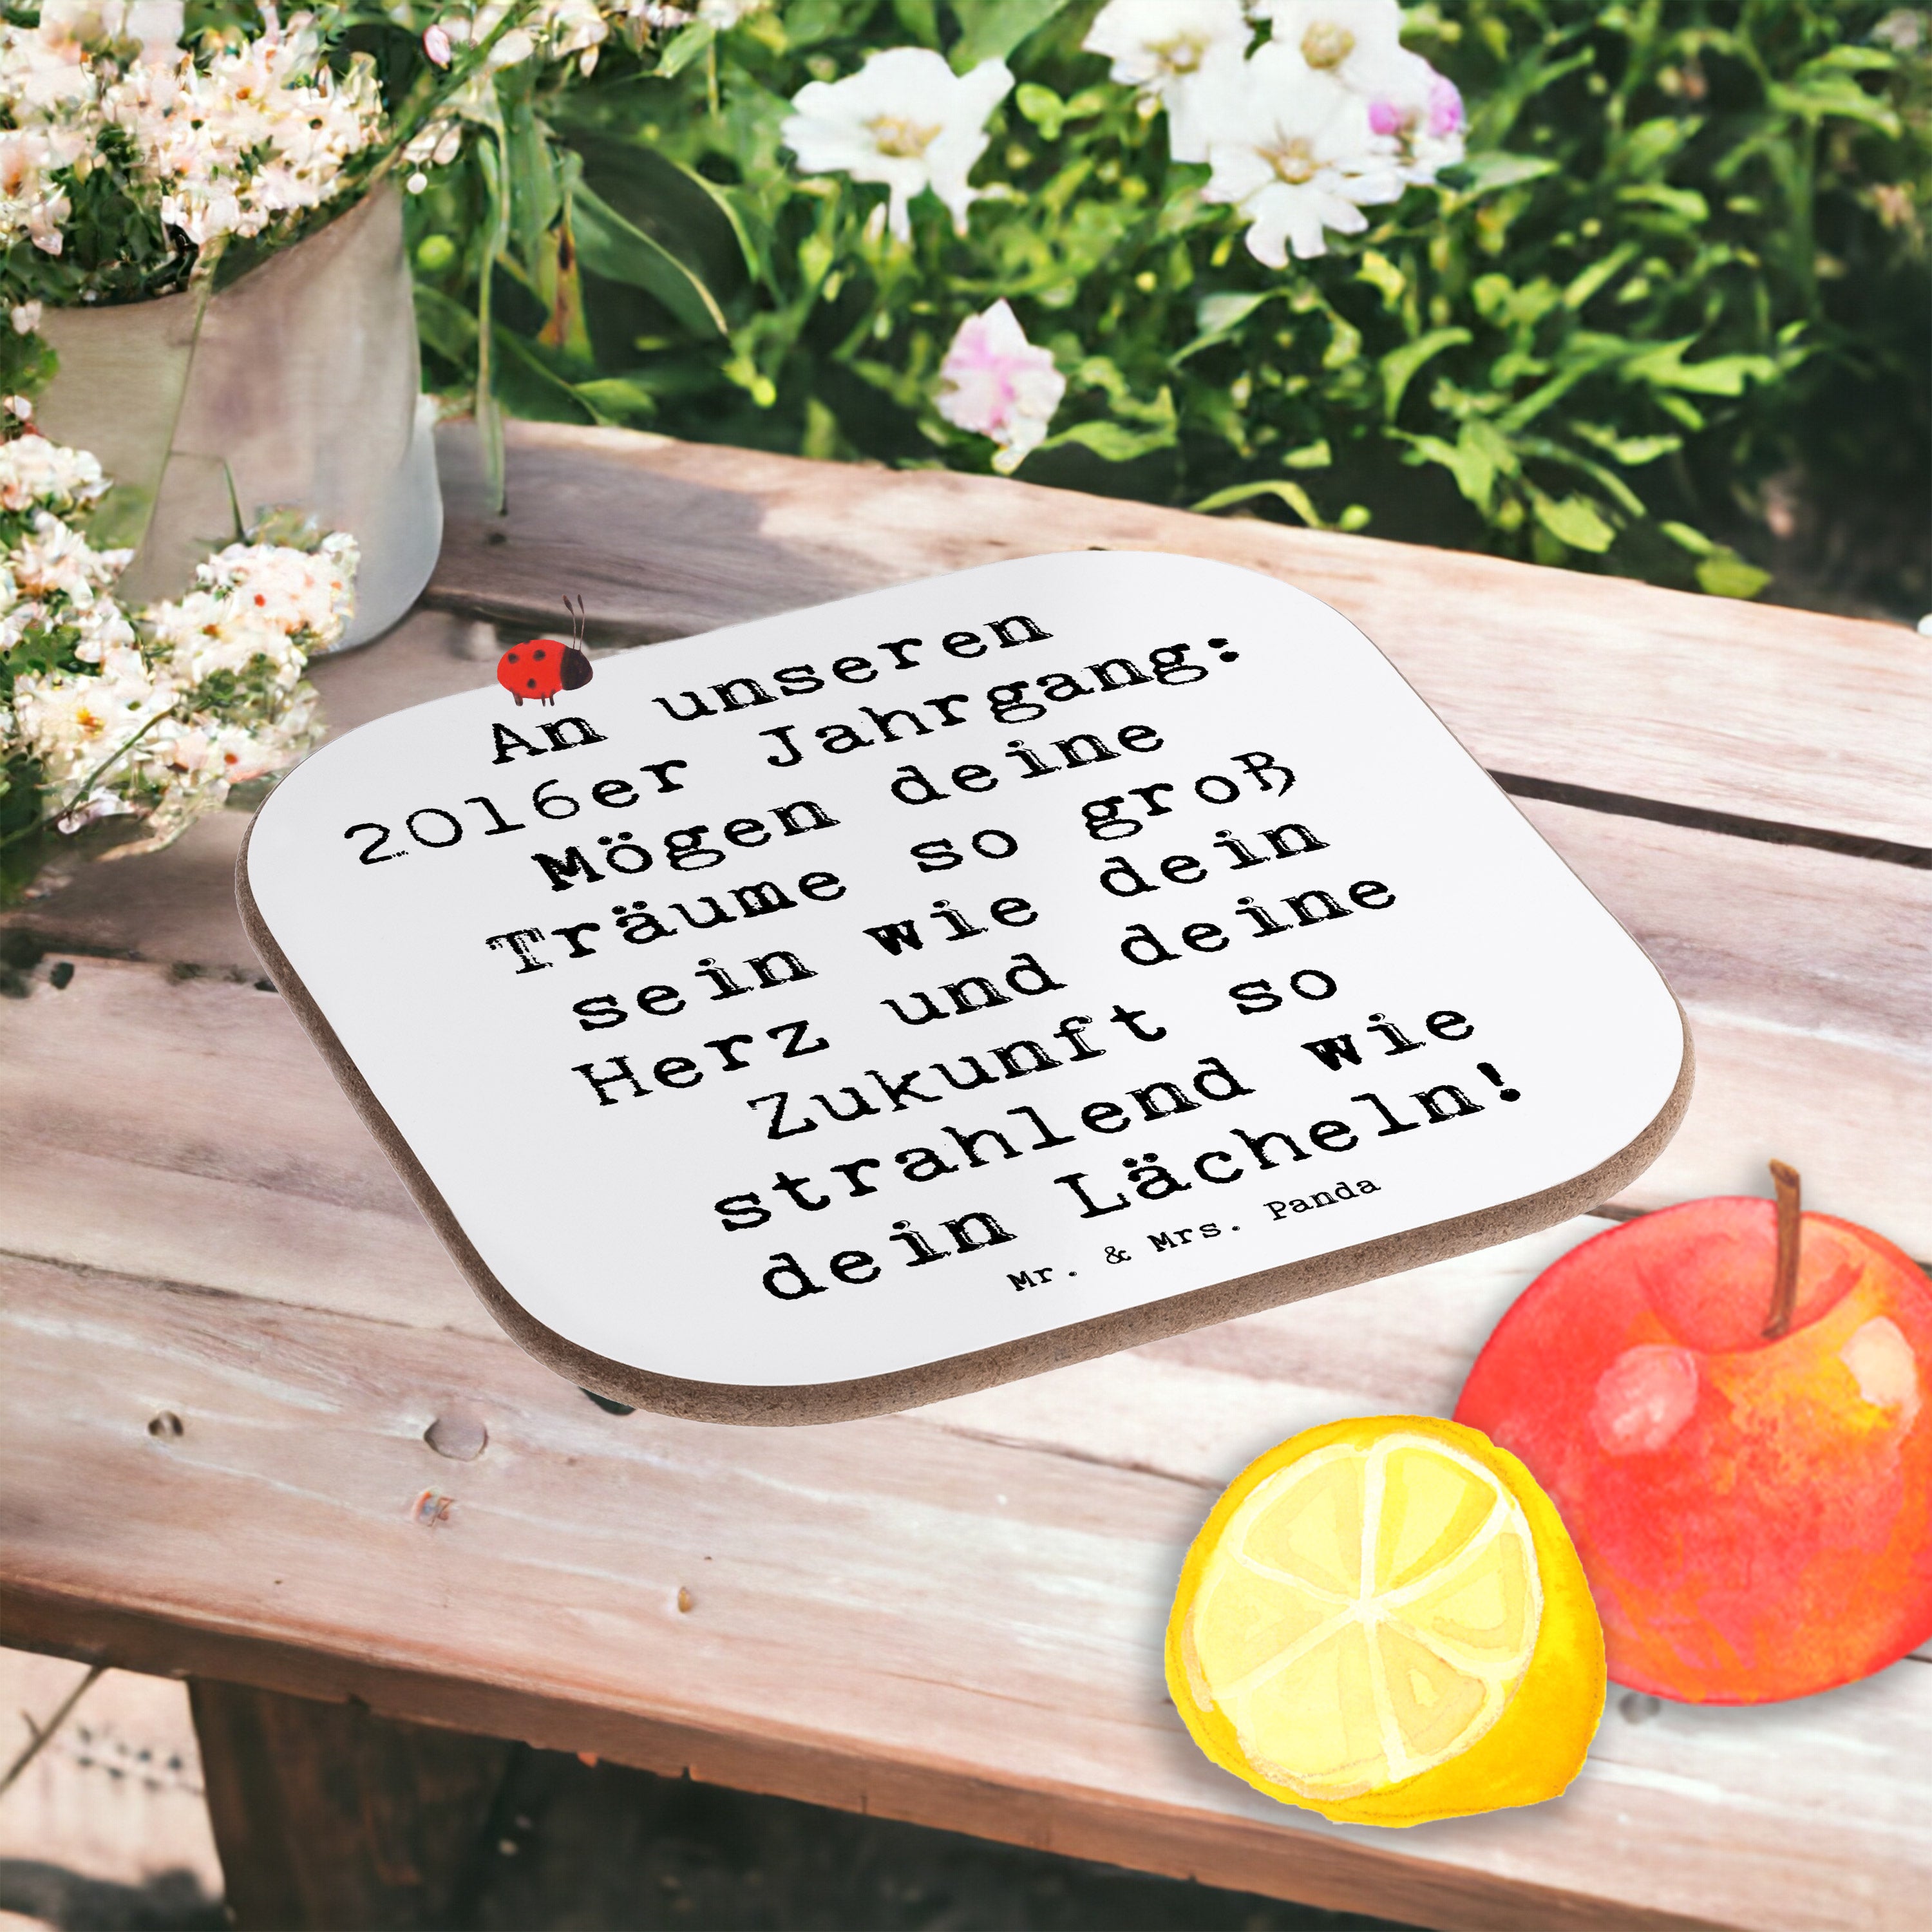 An unseren
2016er Jahrgang:
Mögen deine
Träume so groß
sein wie dein
Herz und deine
Zukunft so
strahlend wie
dein Lächeln!
Mr. & Mrs. Panda